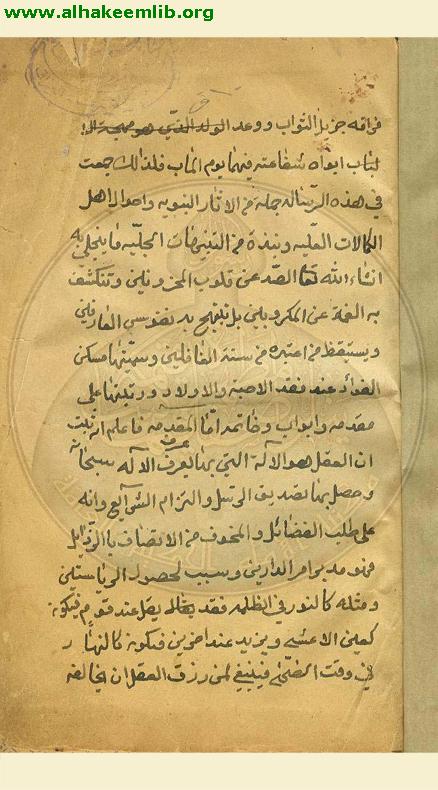 www.alhakeemlib.org
فراقه جزيل الثواب ووعد الولد الذي هو مهجة الا
لباب ابواه شفاعته فيهما يوم المآب فلذلك جمعت
في هذه الرساله جملة من الاثار النبويه واحوال اهل
الكمالات العليه ونبذة من التنبيهات الجليّه ما ينجلي به
انشاء الله تعا الصدء عن قلوب المحزونين وتنكشف
به الغمة عن المكروبين بل تبتهج به نفوس العارفين
ويستيقظ من اعتبره من سنة الغافلين وسميتها مسكن
الفوائد عند فقد الاحبة والاولاد ورتبتها على
مقدمه وابواب وخاتمه امّا المقدمه فاعلم انه ثبت
ان العقل هو الآلة التي بها يعرف عرف الآله سبحانه
وحصل بها تصديق الرسل والتزام الشرايع وانه
على طلب الفضائل والمخوف من الاتصاف بالرذائل
فهو مدبر امر الدارين وسبب لحصول الرياستين
ومثله كالنور في الظلمه فقد يقل عند قوم فيكون
كعين الاعشى ويزيد عند اخرين فيكون كالنهار
في وقت الضحى فينبغي لمن رزق العقل ان يخالفه